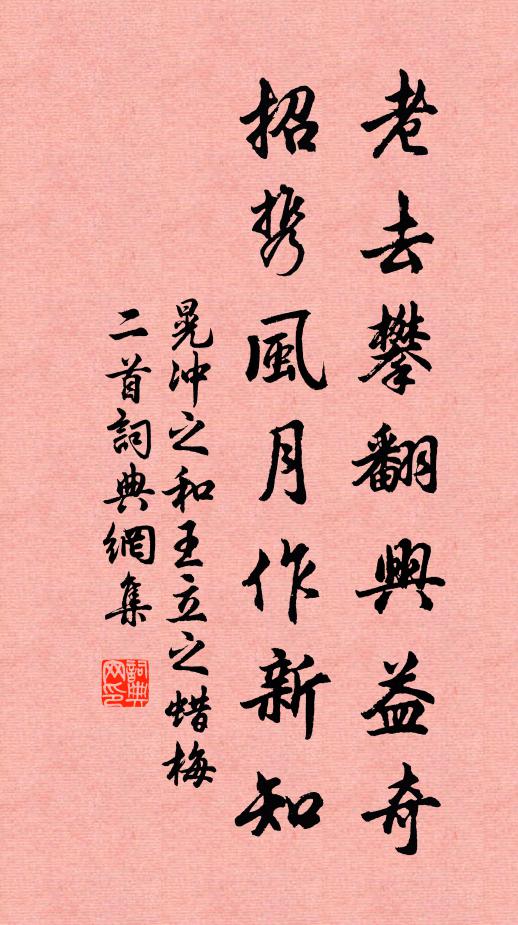 老去攀翻興益奇
招携風月作新知
晁冲之和王立之蜡梅
二首詞典網集
詞典
网印